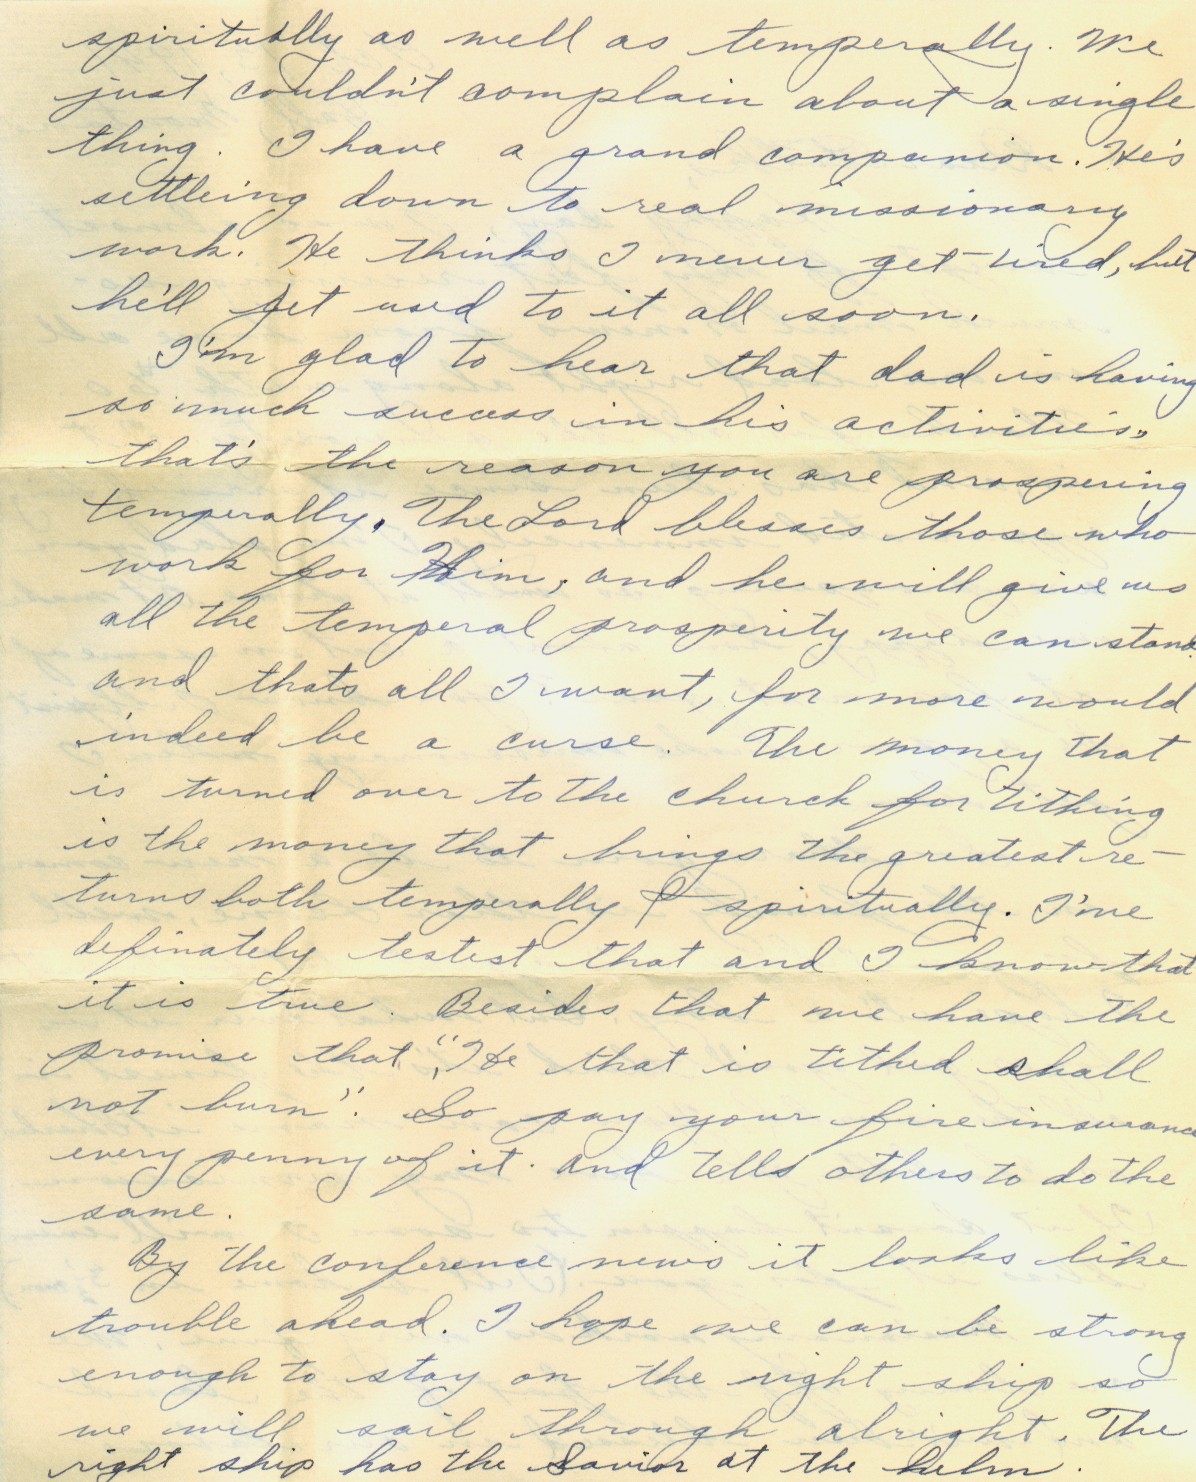 spiritually as well as temperally. We
just couldn't complain about a single
thing. I have a grand companion. He's
settleing down to real missionary
work. He thinks I never get tired, but
he'll get used to it all soon.
I'm glad to hear that dad is having
so much success in his activities,
that's the reason you are prospering
temperally. The Lord blesses those who
work for Him, and he will give us
all the temperal prosperity we can stand
and thats all I want, for more would
indeed be a curse. The money that
is turned over to the church for tithing
is the money that brings the greatest re-
turns both temperally & spiritually. I've
definately testest that and I know that
it is true. Besides that we have the
promise that, "He that is tithed shall
not burn". So pay your fire insurance
every penny of it. and tells others to do the
same.
By the conference news it looks like
trouble ahead. I hope we can be strong
enough to stay on the right ship so
we will sail through alright. The
right ship has the Savior at the helm.